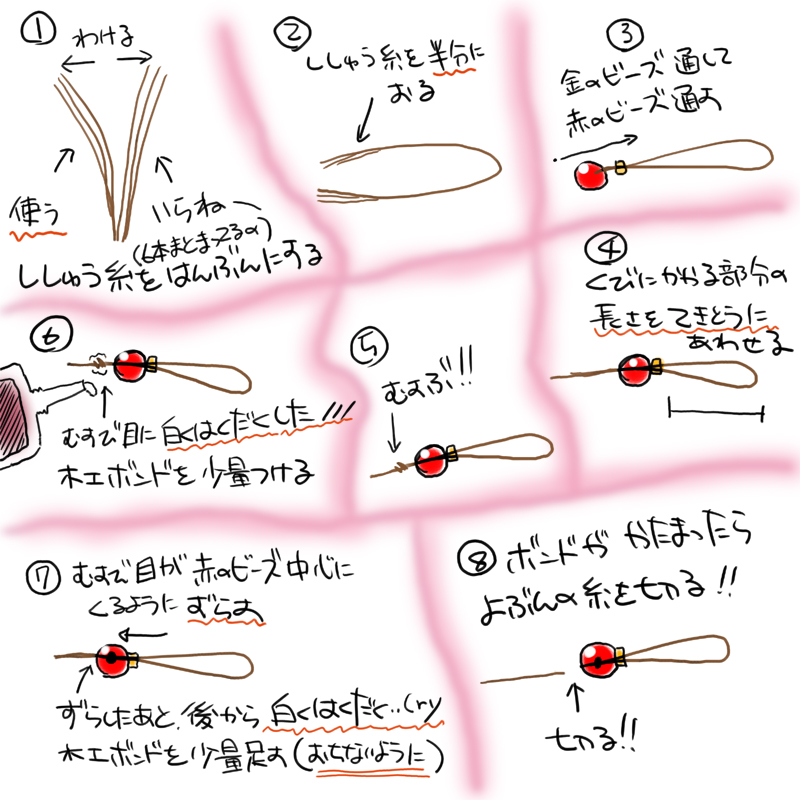 ①
わける
使う
いらね〜
(6本まとまってるの)
ししゅう糸をはんぶんにする
②
ししゅう糸を半分に
おる
③
金のビーズ通して
赤のビーズ通す
④
くびにかかる部分の
長さをてきとうに
あわせる
⑤
むすぶ!!
⑥
むすび目に白くはくだくした!!!
木工ボンドを少量つける
⑦
むすび目が赤のビーズ中心に
くるようにずらす
ずらしたあと、後から白くはくだく..(ry
木工ボンドを少量足す(おちないように)
⑧
ボンドがかたまったら
よぶんの糸を切る!!
切る!!